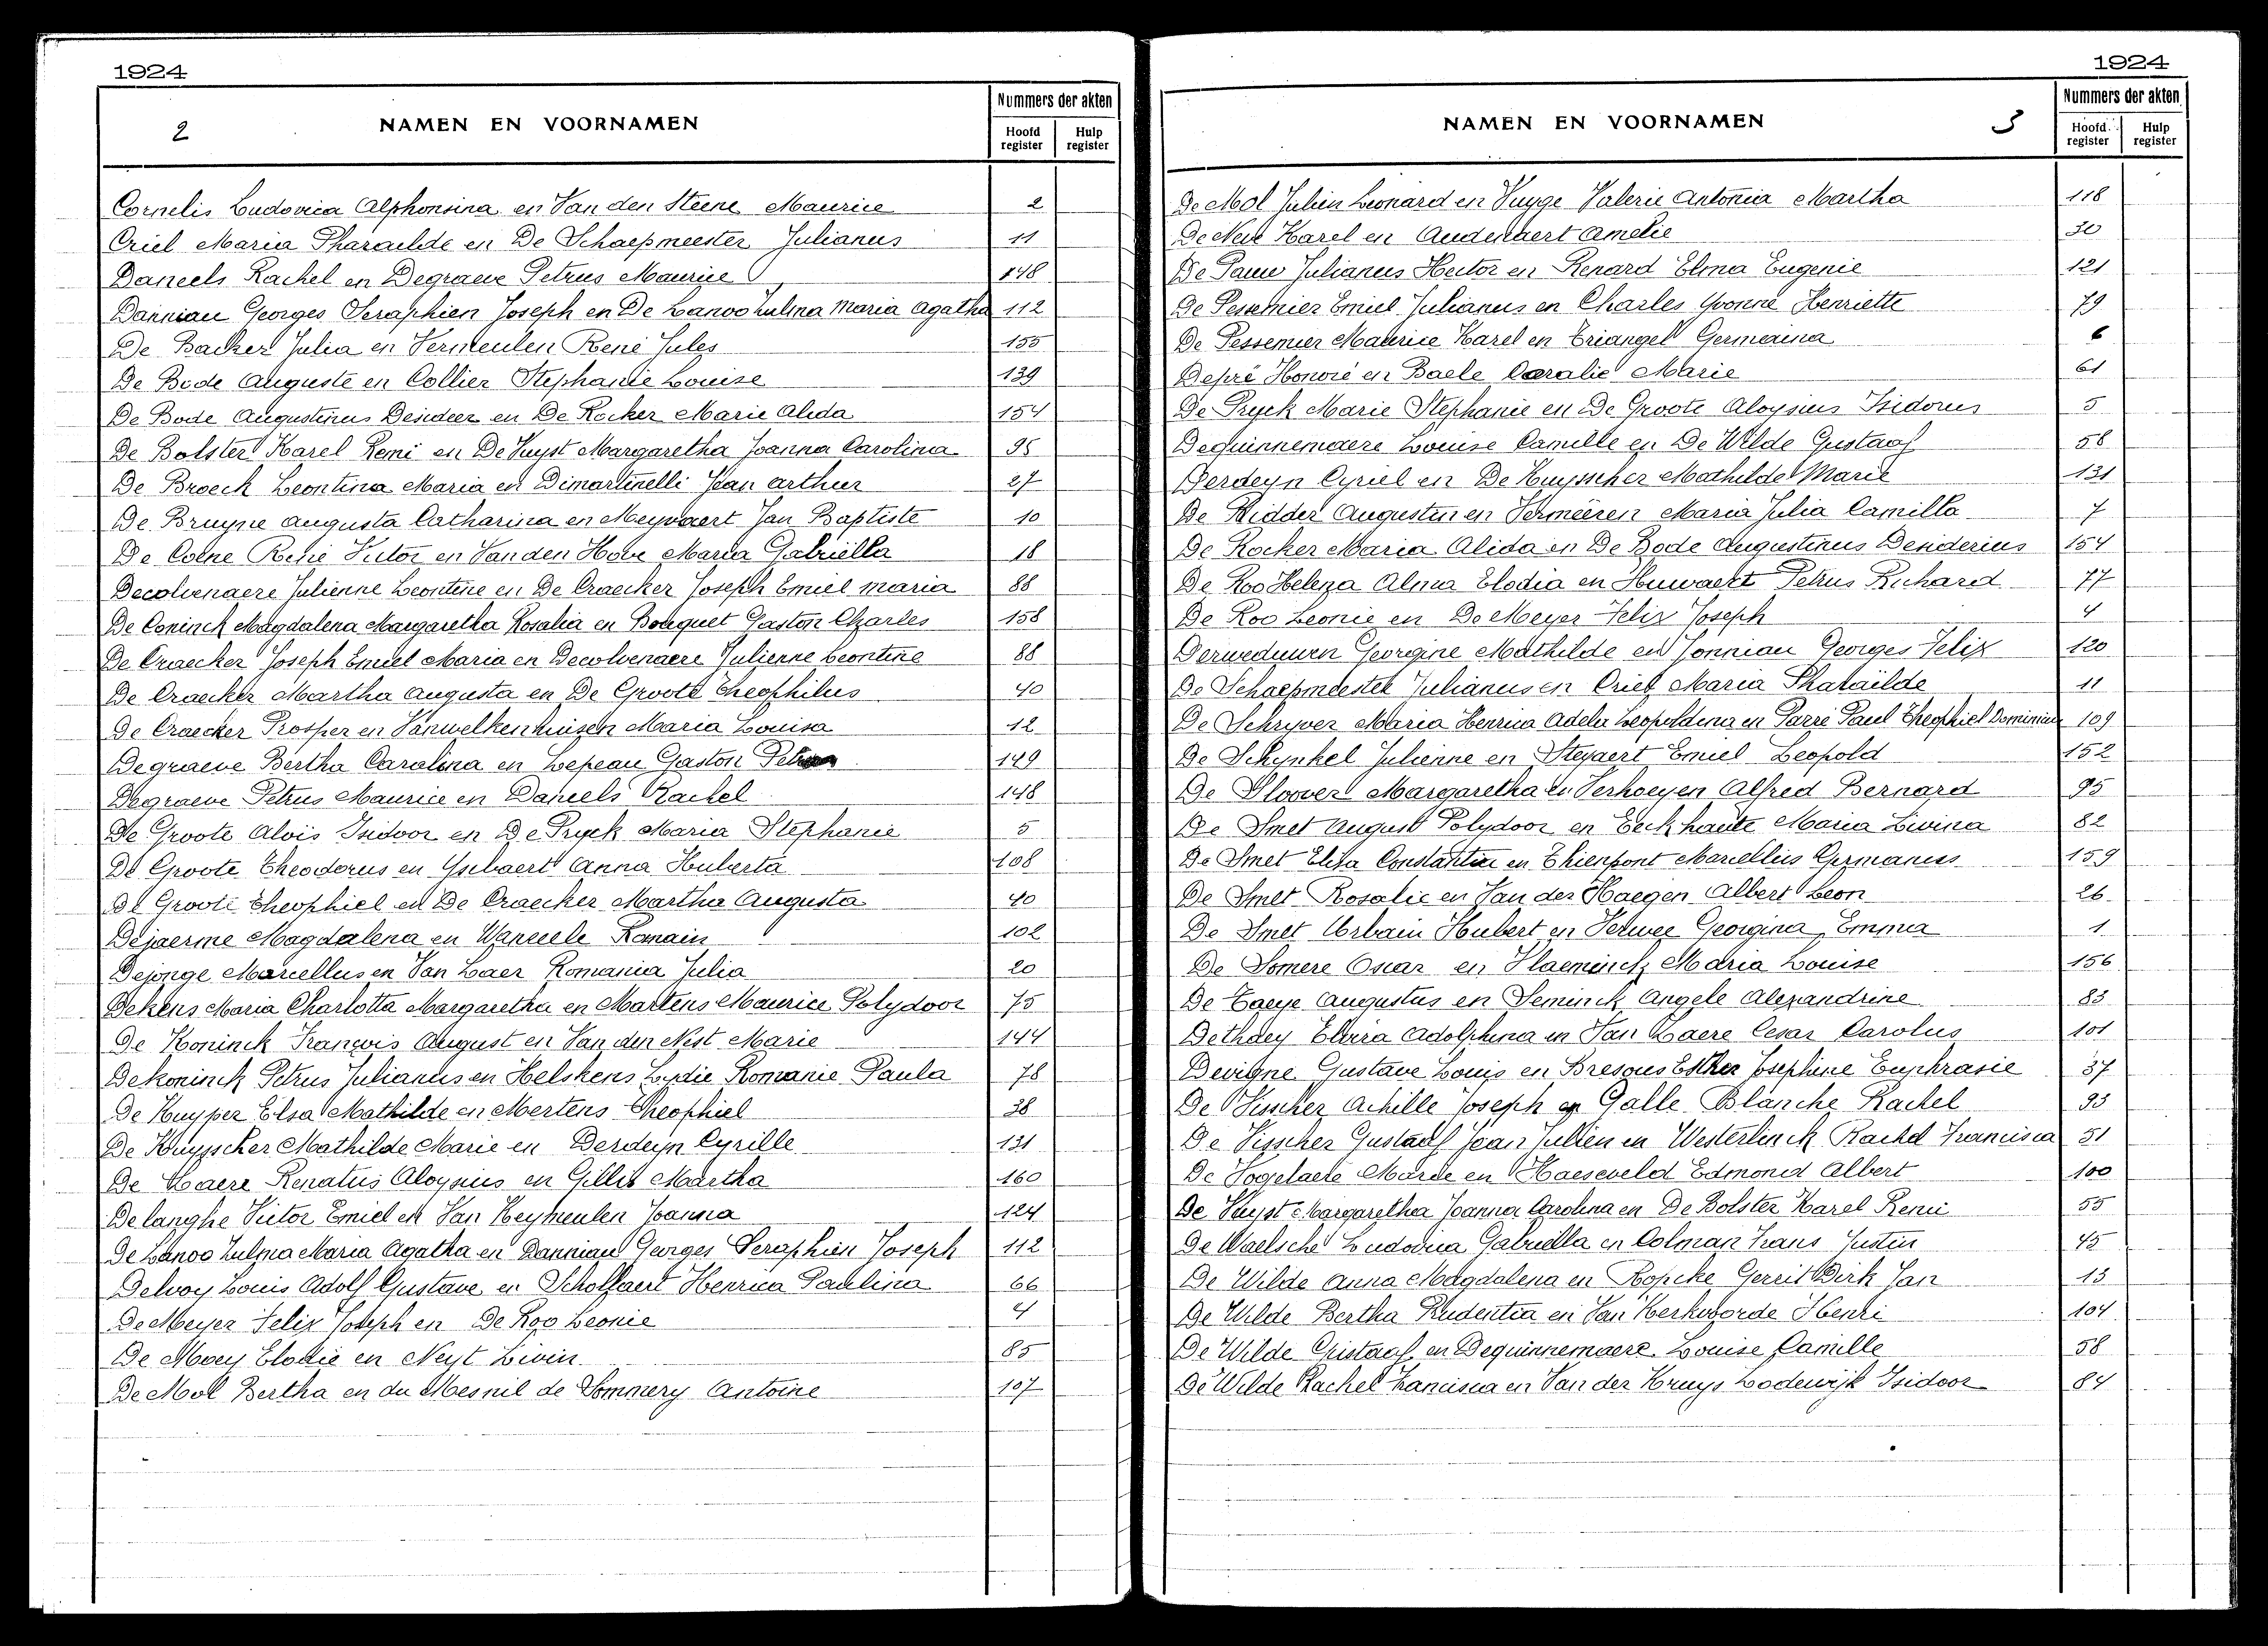 1924
2
NAMEN EN VOORNAMEN
Nummers der akten
Hoofd register
Hulp register
Cornelis Ludovica Alphonsina en Van den Steene Maurice 2
Criel Maria Pharaïlde en De Schaepmeester Julianus 11
Daneels Rachel en Degraeve Petrus Maurice 148
Danniau Georges Seraphien Joseph en De Lanoo Zulma Maria Agatha 112
De Backer Julia en Vermeulen René Jules 155
De Bode Auguste en Collier Stephanie Louise 139
De Bode Augustinus Desideer en De Rocker Marie Alida 154
De Bolster Karel Remi en De Vuyst Margaretha Joanna Carolina 95
De Broeck Leontina Maria en Dimartinelli Jean Arthur 27
De Bruyne Augusta Catharina en Meyvaert Jan Baptiste 10
De Coene René Victor en Van den Hove Maria Gabriella 18
Decolvenaere Julienne Leontine en De Craecker Joseph Emiel Maria 88
De Coninck Magdalena Margaretha Rosalia en Bouquet Gaston Charles 158
De Craecker Joseph Emiel Maria en Decolvenaere Julienne Leontine 88
De Craecker Martha Augusta en De Groote Theophilus 40
De Craecker Prosper en Vanwelkenhuizen Maria Louisa 12
Degraeve Bertha Carolina en Lepeau Gaston 149
Degraeve Petrus Maurice en Daneels Rachel 148
De Groote Alois Isidoor en De Pryck Maria Stephanie 5
De Groote Theodorus en Ysebaert Anna Huberta 108
De Groote Theophiel en De Craecker Martha Augusta 40
Dejaerme Magdalena en Romain 102
Dejonge Marcellus en Van Laer Romania Julia 20
Dekens Maria Charlotta Margaretha en Martens Maurice Polydoor 75
De Koninck François August en Van den Nest Marie 144
Dekoninck Petrus Julianus en Helskens Lydie Romanie Paula 78
De Kuyper Elsa Mathilde en Mertens Theophiel 38
De Kuysscher Mathilde Marie en Derdeyn Cyrille 131
De Laere Renatus Aloysius en Gillis Martha 160
Delanghe Victor Emiel en Van Keymeulen Joanna 124
De Lanoo Zulma Maria Agatha en Danniau Georges Seraphien Joseph 112
Delvoy Louis Adolf Gustave en Scholfaert Henrica Paulina 66
De Meyer Felix Joseph en De Roo Leonie 4
De Moey Elodie en Neyt Livin 85
De Mol Bertha en du Mesnil de Sommery Antoine 107
1924
NAMEN EN VOORNAMEN
3
Nummers der akten
Hoofd register
Hulp register
De Mol Julien Leonard en Vuyge Valerie Antonia Martha 118
De Neve Karel en Audenaert Amelie 30
De Pauw Julianus Hector en Renard Elma Eugenie 121
De Pessemier Emiel Julianus en Charles Yvonne Henriette 79
De Pessemier Maurice Karel en Triangel Germaina 6
Depré Honoré en Baele Coralie Marie 61
De Pryck Marie Stephanie en De Groote Aloysius Isidorus 5
Dequinnemaere Louise Camille en De Wilde Gustaaf 58
Derdeyn Cyriel en De Kuysscher Mathilde Marie 131
De Ridder Augustin en Vermeiren Maria Julia Camilla 7
De Rocker Maria Alida en De Bode Augustinus Denderius 154
De Roo Helena Alma Elodia en Huwaert Petrus Richard 77
De Roo Leonie en De Meyer Felix Joseph 4
Derweduwen Georgine Mathilde en Jonniau Georges Felix 120
De Schaepmeester Julianus en Criel Maria Pharaïlde 11
De Schryver Maria Henrica Adela Leopoldina en Parré Paul Theophiel Dominicus 109
De Schynkel Julienne en Steyaert Emiel Leopold 152
De Sloover Margaretha en Verhoeyen Alfred Bernard 95
De Smet August Polydoor en Eeckhaute Maria Livina 82
De Smet Elisa Constantia en Thienpont Marcellus Germanus 159
De Smet Rosalie en Van der Haegen Albert Leon 26
De Smet Urbain Hubert en Verwee Georgina Emma 1
De Somere Oscar en Vlaeminck Maria Louise 156
De Taeye Augustus en Seminck Angele Alexandrine 83
Dethaey Elvira Adolphina en Van Laere Cesar Carolus 101
Devigne Gustave Louis en Bresous Esther Josephine Euphrasie 37
De Visscher Achille Joseph en Galle Blanche Rachel 93
De Visscher Gustaaf Jean Julien en Westerlinck Rachel Francisca 51
De Vogelaere Marie en Haeseveld Edmond Albert 100
De Vuyst Margaretha Joanna Carolina en De Bolster Karel Remi 55
De Waelsche Ludovica Gabriella en Colman Frans Justin 45
De Wilde Anna Magdalena en Ropcke Gerrit Dirk Jan 13
De Wilde Bertha Prudentia en Van Kerkvoorde Henri 104
De Wilde Gustaaf en Dequinnemaere Louise Camille 58
De Wilde Rachel Francisca en Van der Kruys Lodewijk Isidoor 84